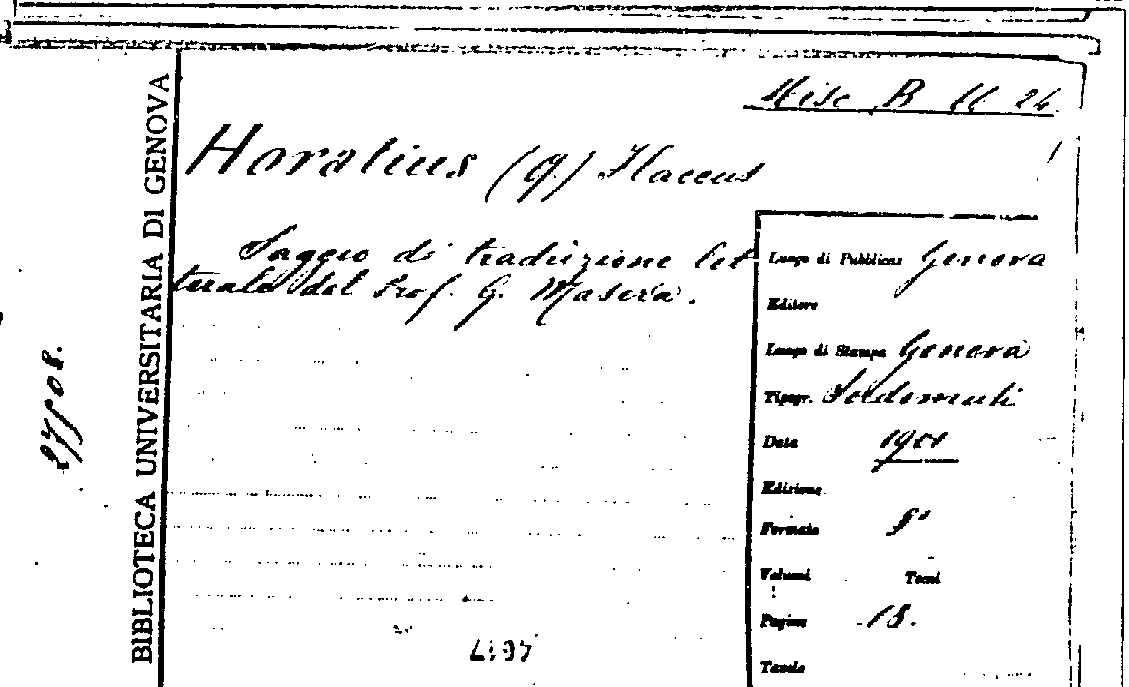 Misc. B 11 24
Horatius (Q.) Flaccus
Saggio di traduzione let
terale del Prof. G. Masera.
BIBLIOTECA UNIVERSITARIA DI GENOVA
Luogo di Pubblicaz. Genova
Editore
Luogo di Stampa Genova
Tipogr. Sordomuti
Data 1901
Edizione
Formato 8°
Volumi Tomi
Pagine 18.
Tavole